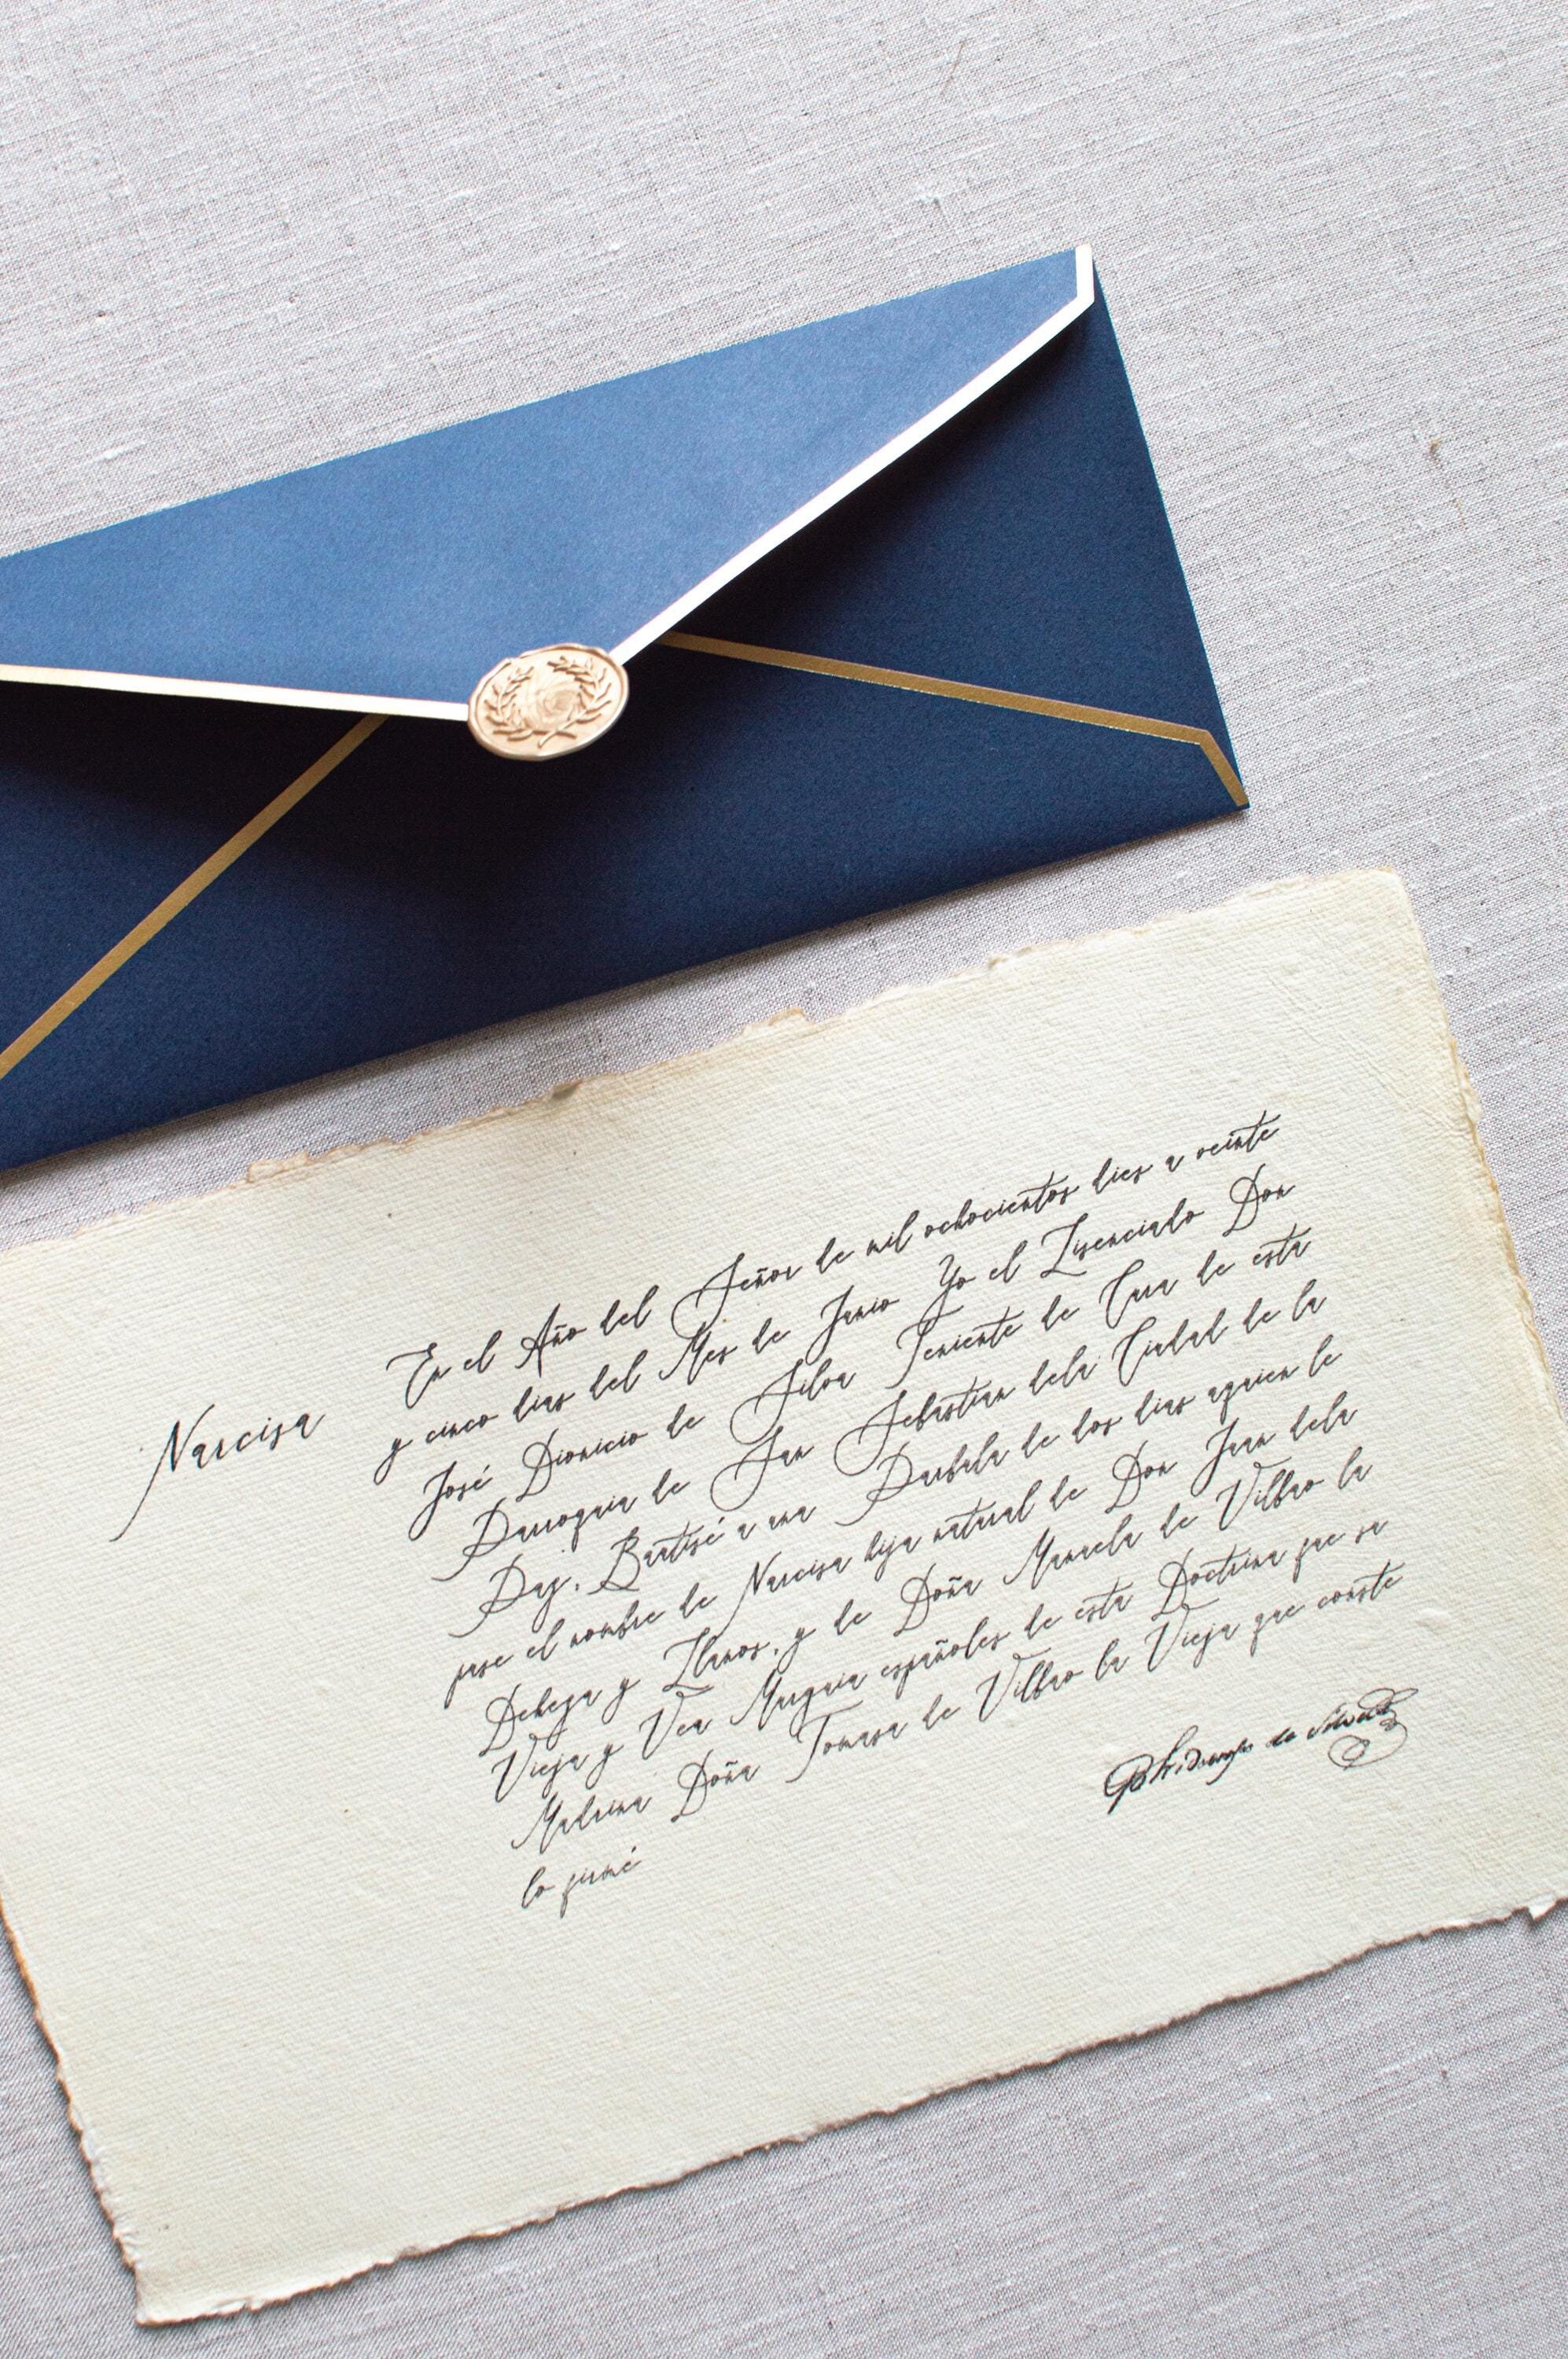 Narcisa
En el Año del Señor de mil ochocientos dies a veinte
y cinco dias del Mes de Junio Yo el Lisenciado Don
José Dionicio de Silva Teniente de Cura de esta
Parroquia de San Sebastian dela Ciudad de la
Paz. Bautisé a una Parbula de dos dias aquien le
puse el nombre de Narcisa hija natural de Don Juan dela
Deheza y Llanos. y de Doña Manuela de Vilbao la
Vieja y Vea Murguia españoles de esta Doctrina fue su
Madrina Doña Tomasa de Vilbao la Vieja que conste
lo firmé